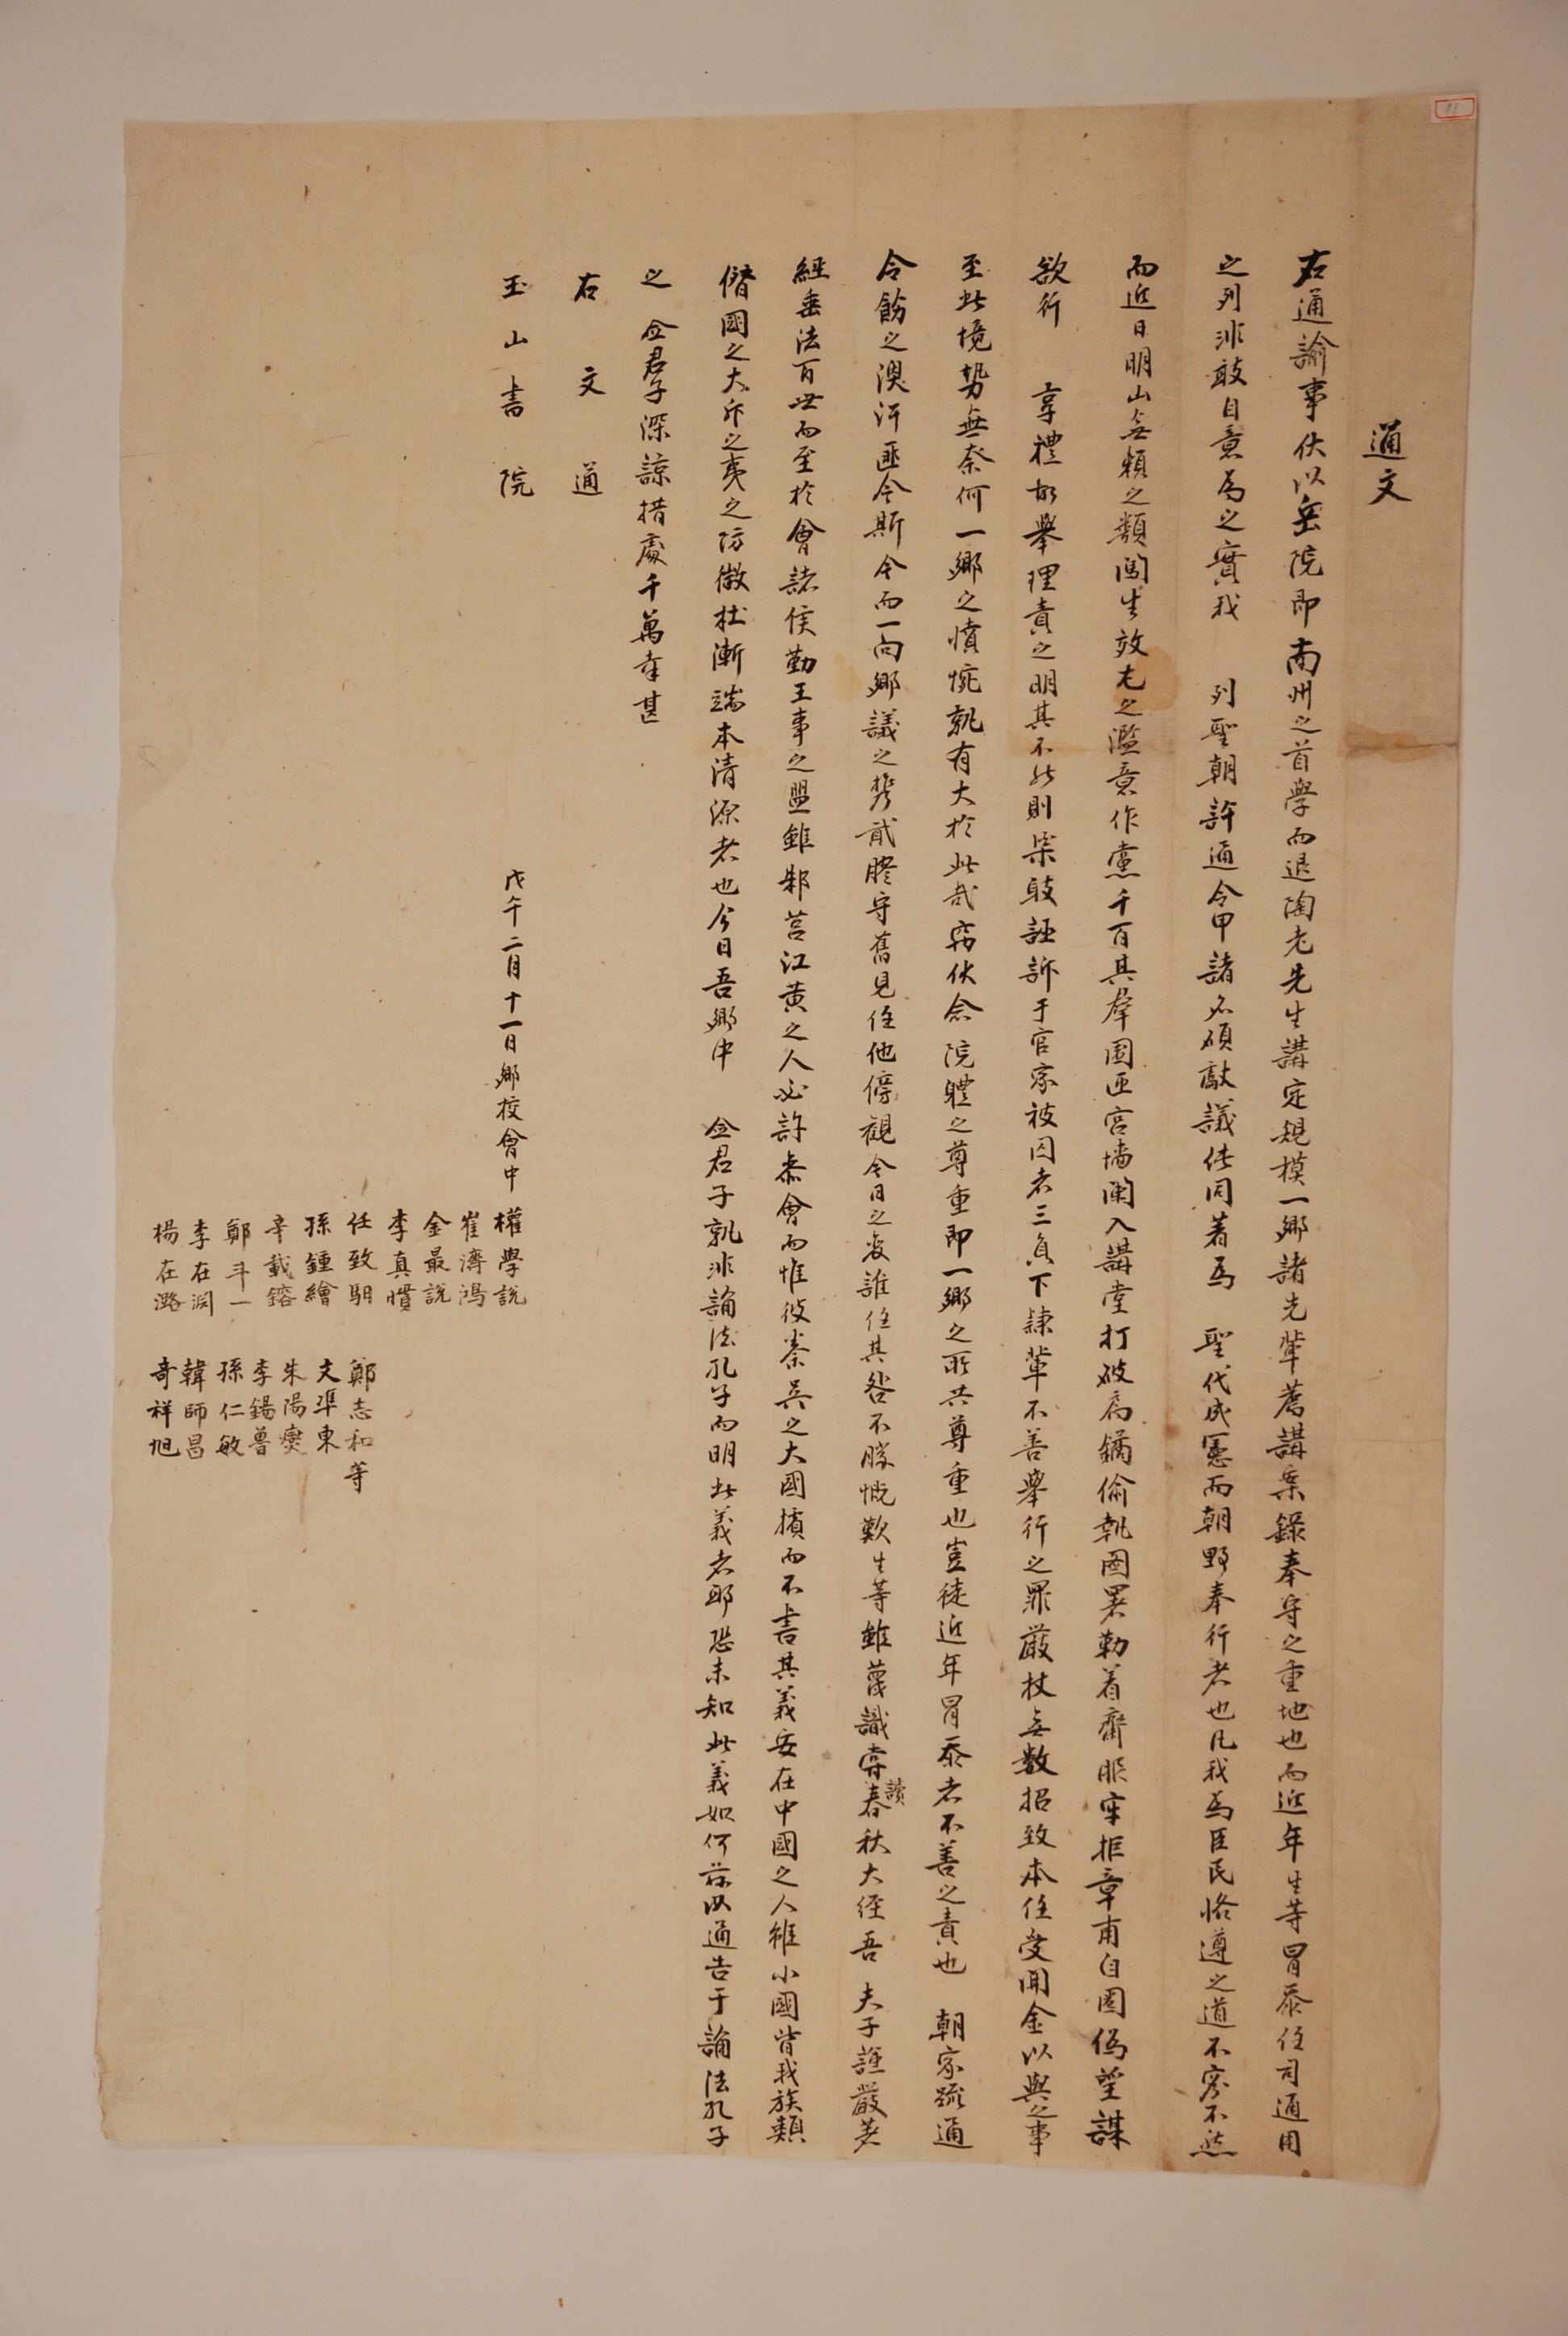 通文
右通諭事伏以岳院即南州之首學而退陶老先生講定規模一鄉諸先輩薦講案錄奉守之重地也而近年生等冒忝任司通用
之列非敢自意爲之實我 列聖朝許通令甲諸名碩獻議仕同着爲 聖代成憲而朝野奉行者也凡我爲臣民恪遵之道不容不然
而近日明山無賴之類闖生效尤之濫意作黨千百其群圍匝宮墻闌入講堂打破扃鐍偷執圖署勒着齋服牢拒章甫自圈僞望謀
欲行 享禮故擧理責之明其不然則渠敢誣訴于官家被囚者三員下隷輩不善擧行之罪嚴杖無數招致本任受開金以與之事
至此境勢無奈何一鄉之憤惋孰有大於此哉窃伏念院體之尊重即一鄉之所共尊重也豈徒近年冒忝者不善之責也 朝家疏通
令飭之渙汗匪今斯今而一向鄉議之携貳膠守舊見任他傍觀今日之変誰任其咎不勝慨歎生等雖蔑識嘗讀春秋大經吾 夫子謹嚴筆
經垂法百世而至於會諸侯勤王事之盟雖邾莒江黄之人必許忝會而惟彼秦吳之大國擯而不書其義安在中國之人雖小國皆我族類
僭國之大斥之夷之防微杜漸端本清源者也今日吾鄉中 僉君子孰非誦法孔子而明此義者耶恐未知此義如何茲以通告于誦法孔子
之 僉君子深諒措處千萬幸甚
右文通
玉山書院
戊午二月十一日鄉校會中 權學說
崔濟鴻
金最說
李真馩
任致駉 鄭志和等
孫鍾繪 文準東
辛載鎔 朱陽奭
鄭斗一 李錫魯
李在淵 孫仁敏
楊在潞 韓師昌
奇祥旭